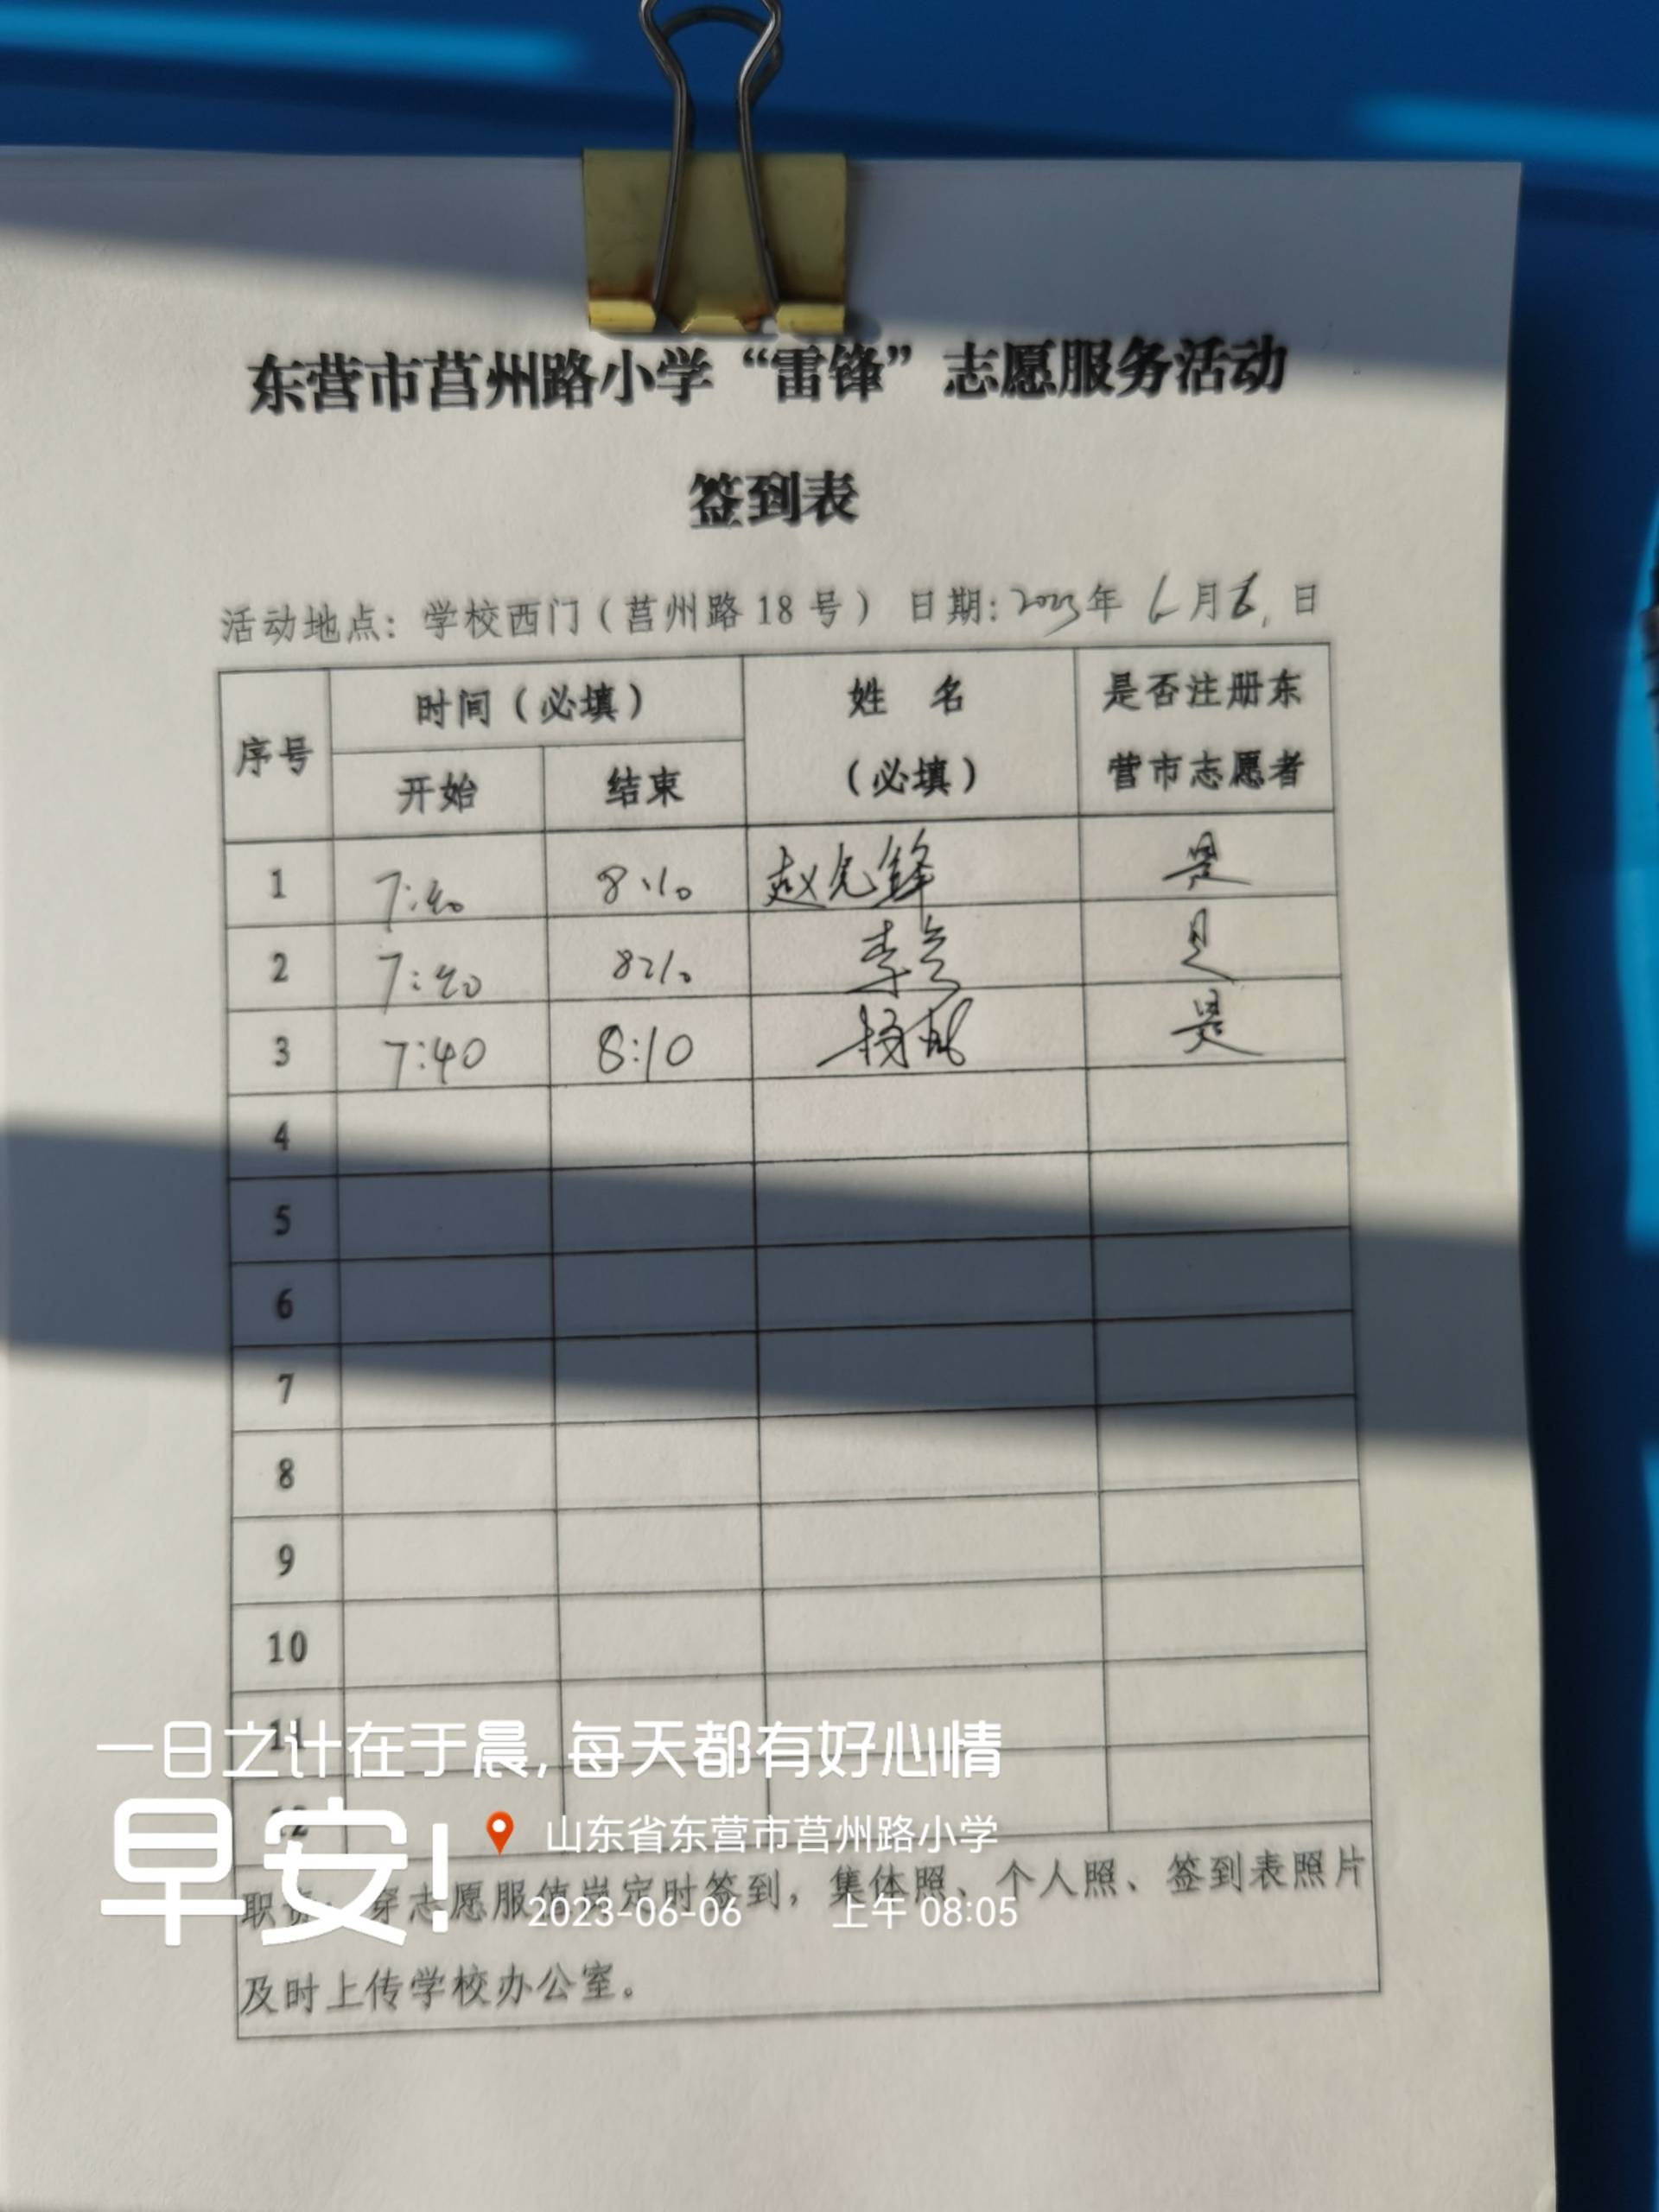 东营市莒州路小学“雷锋”志愿服务活动
签到表
活动地点：学校西门（莒州路18号） 日期：2023年 6月6日
序号 时间（必填） 姓 名（必填） 是否注册东营市志愿者
开始 结束
1 7:40 8:10 赵先锋 是
2 7:40 8:10 李 是
3 7:40 8:10 杨 是
4
5
6
7
8
9
10
11
12
职责：穿志愿服值岗定时签到，集体照、个人照、签到表照片
及时上传学校办公室。
一日之计在于晨,每天都有好心情
早安!
山东省东营市莒州路小学
2023-06-06 上午 08:05